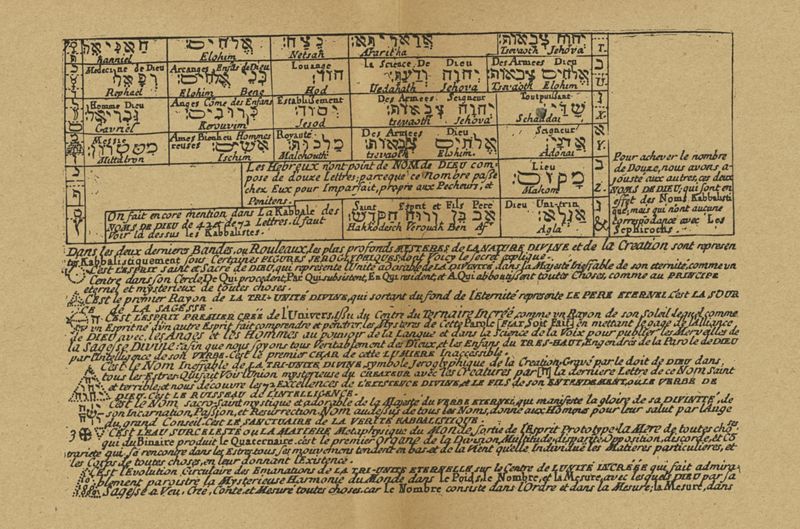 חאניאל אלהים נצח אראריתא יהוה צבאות
Hanniel Elohim Netsah Araritha Tsevaoth Jehova T.
Medecine de Dieu Arcanges Enfas de Dieu Louange La Science, De Dieu Des Armees Dieu
רפאל בני אלהים הוד יהוה ודעת אלהים צבאות V.
Rephael Elohim Bene Hod Vedahath Jehova Tsevaoth Elohim
Homme Dieu Anges Come des Enfans Establissement Des Armees Seigneur Toutpuissant
גבריאל כרובים יסוד יהוה צבאות שדי X.
Gavriel Kerouvim Jesod tsevaoth Jehova Schaddai
Messie Ames Bienheureuses Hommes Royauté Des Armees Dieu Seigneur
מטטרון אישים מלכות אלהים צבאות אדני Y.
Mitatron Ischim Malchouth tsevaoth Elohim. Adonai
Les Hebreux n'ont point de NOM de DIEU com Lieu
pose de douze Lettres: parceque ce Nombre passe מקום
chez Eux pour Imparfait, propre aux Pecheurs, et Makom Z.
Penitens.
On fait encore mention dans La Kabbale des Saint Esprit et Fils Pere Dieu Uni-trin
NOMS DE DIEU de 42 et de 72 Lettres. il faut אב בן ורוח הקדש אגלא &.
Voir la dessus les Kabbalistes. Hakkodesch Verouah Ben Af Agla
Pour achever le nombre
de Douze, nous avons a-
jouste aux autres, ces deux
NOMS DE DIEU; qui sont en
effet des Noms Kabbalisti
que; mais qui n'ont aucune
correspodance avec Les
Sephiroths.
Dans les deux derniers Bandes, ou Rouleaux, les plus profonds MYSTERES de LA NATURE DIVINE et de la Creation sont represen
tés Kabbalistiquement sous Certaines FIGURES dont Voicy le secret expliqué.
C'est L'ESPRIT saint et Sacre de DIEU, qui represente L'Unité adorable de LA DIVINITE, dans sa Majesté Ineffable de son eternité, comme un
Centre dans son Cercle, De Qui procedent, Par Qui subsistent, En Qui resident et A Qui aboutissent toutes Choses, comme au PRINCIPE
eternel et mysterieux de toutes choses.
C'est le premier Rayon de LA TRI-UNITÉ DIVINE, qui sortant du fond de l'Eternité represente LE PERE ETERNEL. C'est LA SOUR
CE de LA SAGESSE.
C'est L'ESPRIT PREMIER CRÉÉ de l'Univers, Issu du Centre du Ternaire Increé comme un Rayon de son Soleil lequel comme
un Esprit né d'un autre Esprit fait comprendre et penétrer les Mysteres de cette Parolle [FIAT, Soit Fait] en mettant le gage de l'alliance
de DIEU avec les Anges et les Hommes au pouvoir de la Langue et dans la Science de la Voix pour publier les Merveilles de
la Sagesse DIVINE: afin que nous soyons tous Veritablement des Dieux, et les Enfans du TRES-HAUT, Engendrés de la Parole de DIEU
par l'intelligence de son VERBE. C'est le premier CHAR de cette LUMIERE Inaccessible.
C'est le Nom Ineffable de LA TRI-UNITÉ DIVINE, symbole Jeroglyphique de la Creation, Gravé par le doit de DIEU dans,
tous les Esprits Qui fait Voir l'Union mysterieuse du CREATEUR avec les Creatures par [ה] la derniere Lettre de ce Nom Saint
et terrible, et nous découvre les 72 Excellences de L'ESSENCE DIVINE, et LE FILS de son ENTENDEMENT, ou LE VERBE DE
DIEU. C'est LE RUISSEAU de L'INTELLIGENCE.
C'est Le Nom sacro-saint mystique et adorable de la Majesté du VERBE ETERNEL, qui manifeste la gloire de sa DIVINITÉ, de
son Incarnation, Passion, et Resurrection. Nom au dessus de tous les Noms, donné aux Hommes pour leur salut par l'Ange
du grand Conseil. C'est LE SANCTUAIRE de LA VERITÉ KABBALISTIQUE.
C'est L'EAU SURCELESTE ou LA MATIERE Metaphysique du Monde, sortie de l'Esprit Prototype: la Mere de toutes cho
qui du Binaire produit le Quaternaire. c'est le premier Organe de la Division, Multitude, disparité, Opposition, discorde, et Co
trarieté qui se rencontre dans les Estres tous ses mouvemens tendent en bas et de la vient quelle Individue les Matieres particulieres, et
les Corps de toutes choses, en leur donnant l'Existence.
C'est l'Evolution Circulaire des Emanations de LA TRI-UNITÉ ETERNELLE sur le Centre de L'UNITE INCREÉE qui fait admira
blement paroistre la Mysterieuse Harmonie du Monde dans le Poids, le Nombre, et la Mesure, avec lesquels DIEU par sa
Sagesse a Veu, Creé, Conté, et Mesuré toutes choses. car le Nombre consiste dans l'Ordre et dans la Mesure; la Mesure, dans